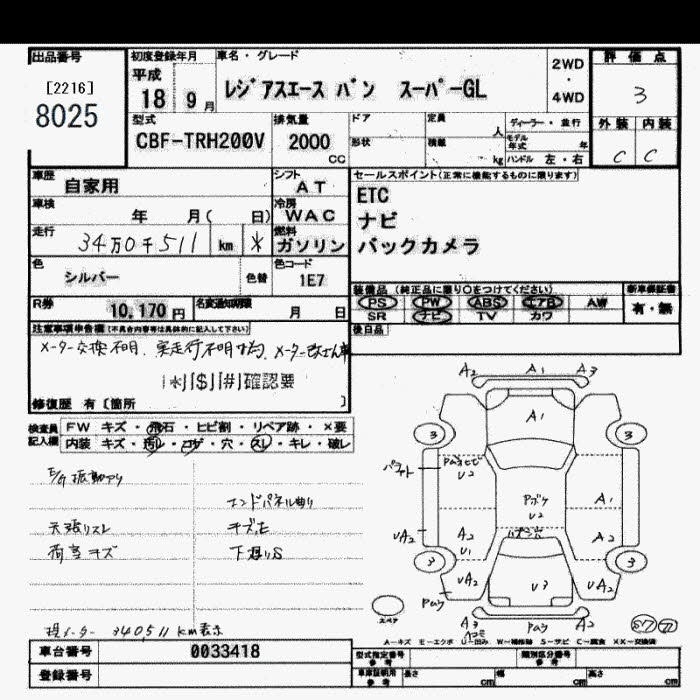 出品番号
[2216]
8025
初度登録年月
平成
18 9 月
車名・グレード
レジアスエース バン スーパーGL
2WD
・
4WD
評価点
3
型式
CBF-TRH200V
排気量
2000
CC
ドア
形状
定員
人
積載
kg
ディーラー・並行
モデル年式 年
ハンドル 左・右
外装 内装
C C
車歴
自家用
シフト
AT
車検
年 月( 日)
冷房
WAC
走行
34万0千511 km *
燃料
ガソリン
色
シルバー
色替
色コード
1E7
セールスポイント(正常に機能するものに限ります)
ETC
ナビ
バックカメラ
装備品 (純正品に限り○をつけてください)
PS PW ABS エアB AW
SR ナビ TV カワ
新車保証書
有・無
R券
10,170 円
名変通知期限
月 日
後日品
注意事項申告欄(不具合内容等は具体的に記入して下さい)
メーター交換不明、実走行不明
[*][$][#]確認要
修復歴 有〔箇所 〕
検査員
記入欄
FW キズ・飛石・ヒビ割・リペア跡・×要
内装 キズ・汚レ・コゲ・穴・スレ・キレ・破レ
E/G振動アリ
エンドパネル曲り
天張リスレ
キズ七
荷室キズ
下廻りS
現メーター 340511km表示
A2 A1 A3
A1
3 3
U2
Pボケ
U2
A1
UA2
A2
U1
A2
3 3
UA2
U3
UA2
A3
スペア
A-キズ E-エクボ U-凹み W-補修跡 S-サビ C-腐食 XX-交換済
車台番号
0033418
登録番号
型式指定番号
参考
類別区分番号
参考
車庫証明用
参考
長さ cm 幅 cm 高さ cm